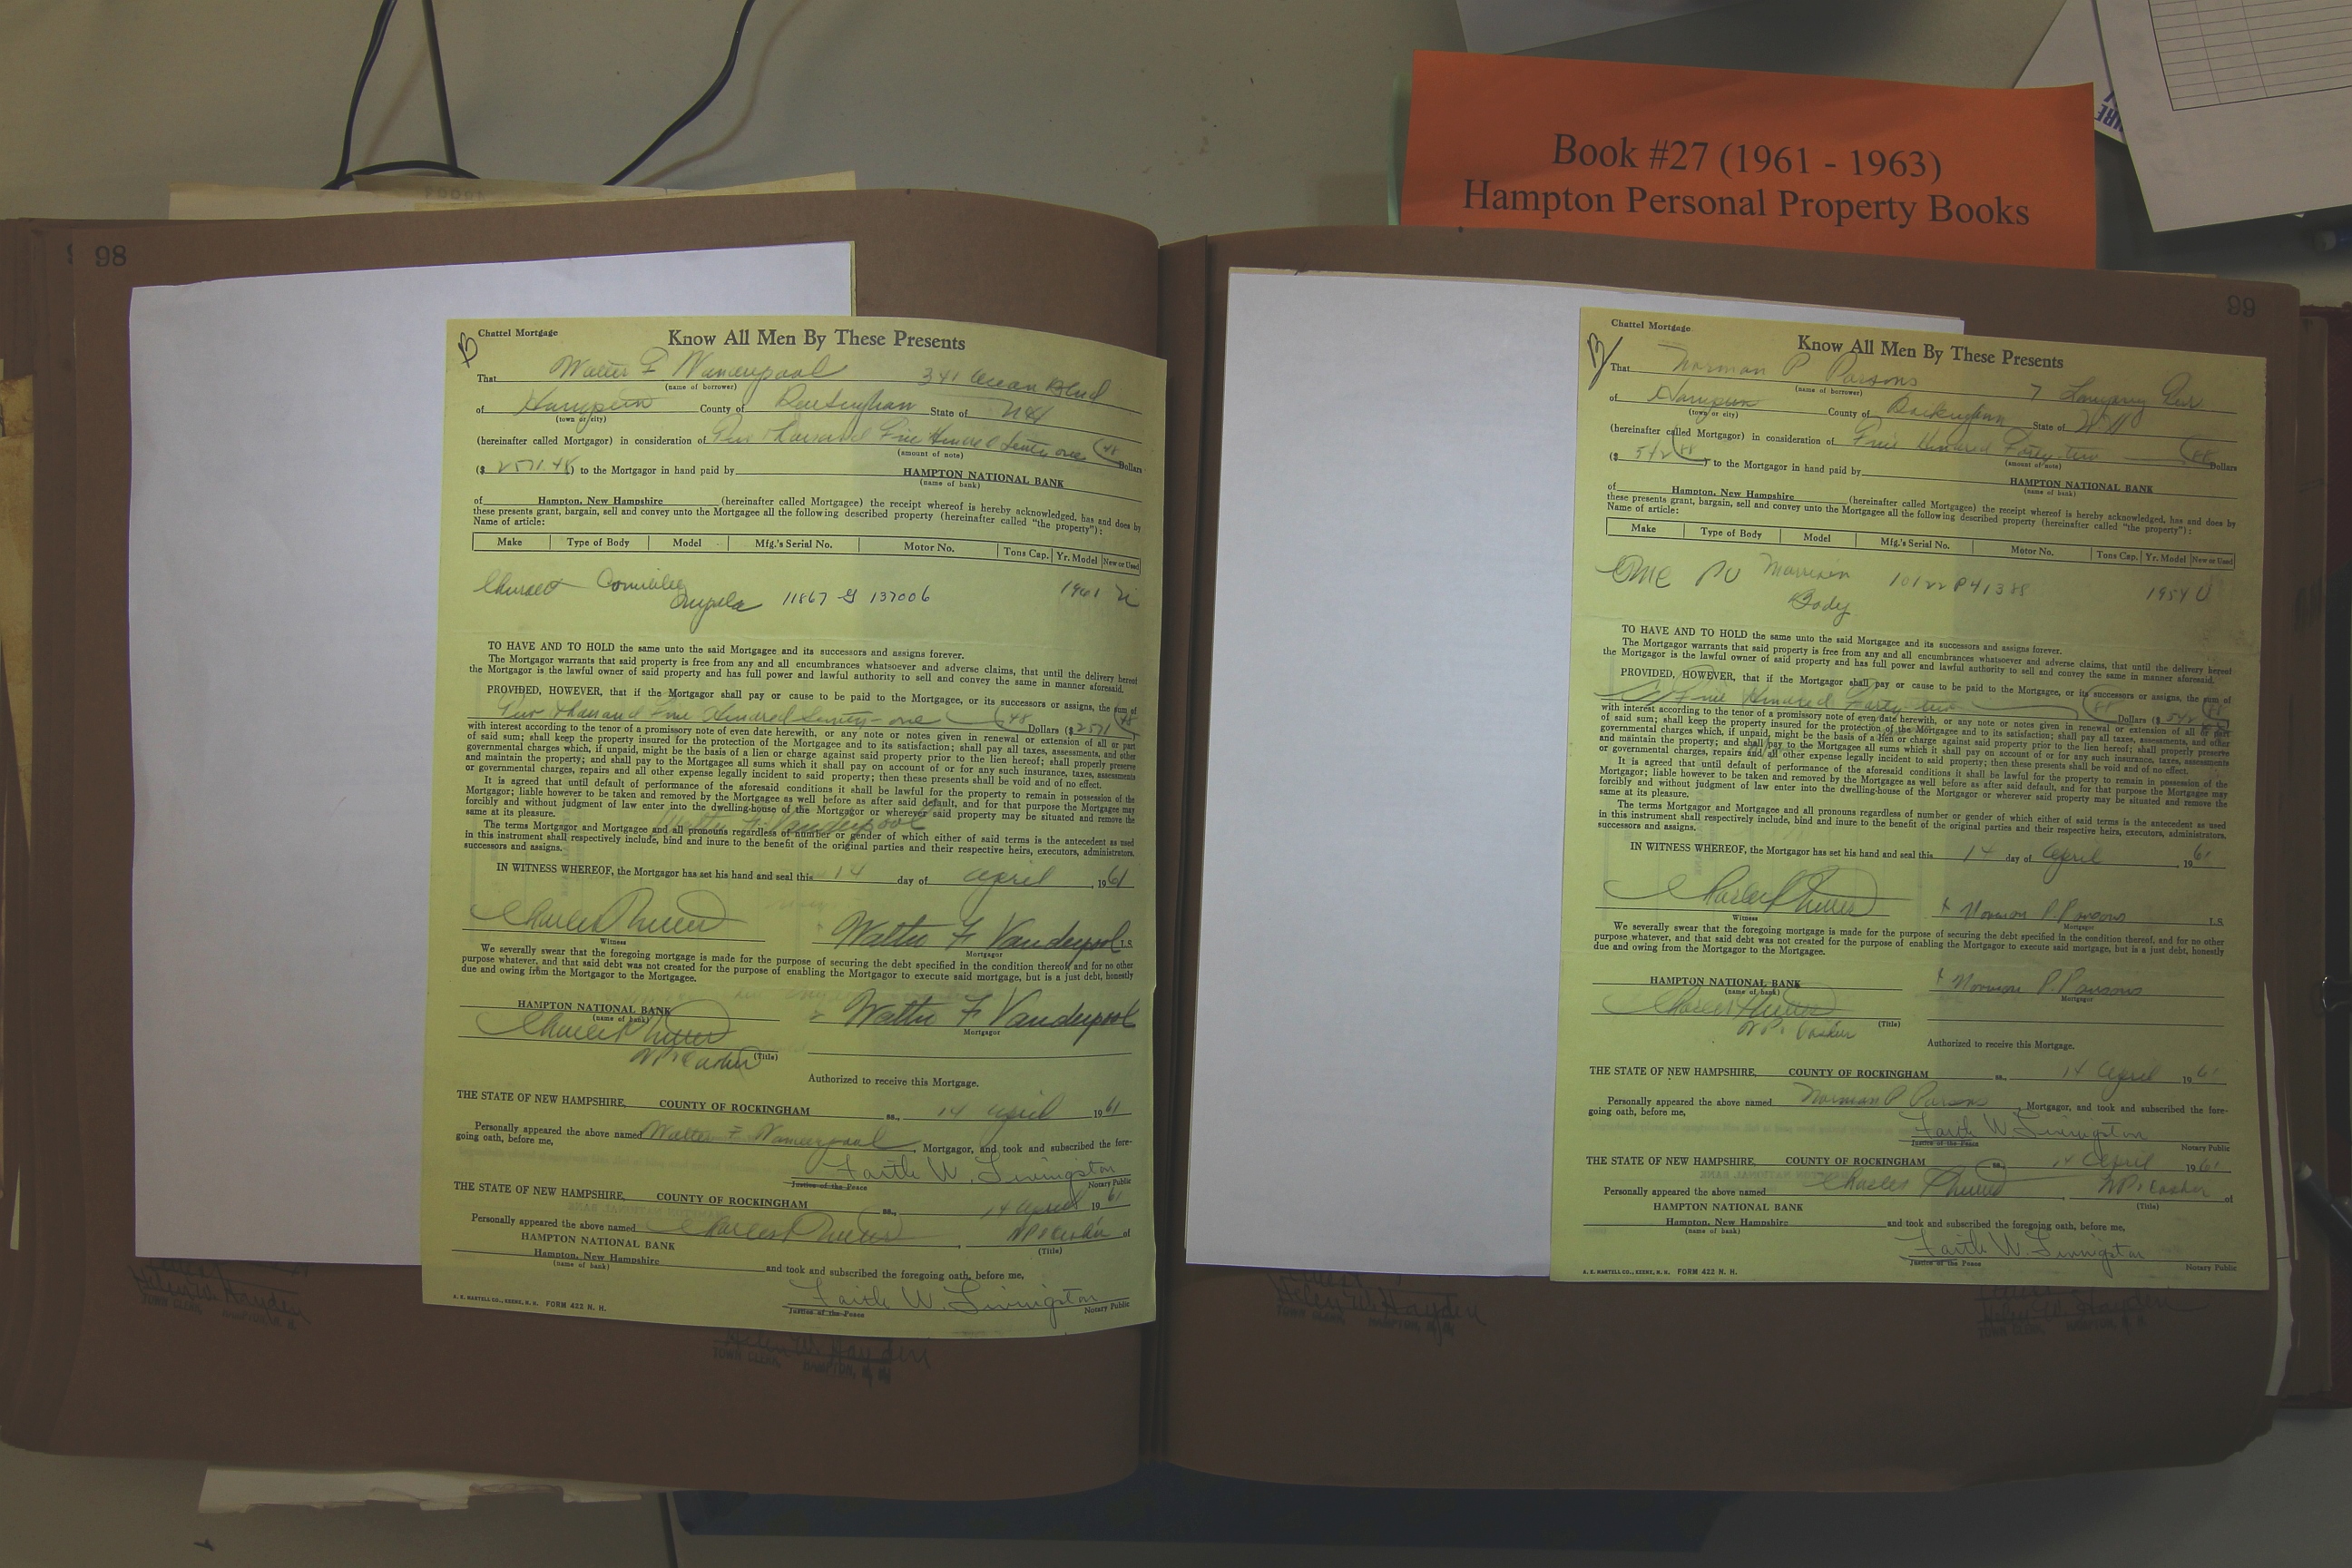 Book #27 (1961 - 1963)
Hampton Personal Property Books
98
Chattel Mortgage
Know All Men By These Presents
That Walter F Vanderpool 341 Ocean Blvd
(name of borrower)
of Hampton County of Rockingham State of NH
(town or city)
(hereinafter called Mortgagor) in consideration of Two Thousand Five Hundred Seventy one 48 Dollars
(amount of note)
($ 2571.48) to the Mortgagor in hand paid by HAMPTON NATIONAL BANK
(name of bank)
of Hampton, New Hampshire (hereinafter called Mortgagee) the receipt whereof is hereby acknowledged, has and does by
these presents grant, bargain, sell and convey unto the Mortgagee all the following described property (hereinafter called "the property"):
Name of article:
Make Type of Body Model Mfg.'s Serial No. Motor No. Tons Cap. Yr. Model New or Used
Impala 11867 G 137006 1961
TO HAVE AND TO HOLD the same unto the said Mortgagee and its successors and assigns forever.
The Mortgagor warrants that said property is free from any and all encumbrances whatsoever and adverse claims, that until the delivery hereof
the Mortgagor is the lawful owner of said property and has full power and lawful authority to sell and convey the same in manner aforesaid.
PROVIDED, HOWEVER, that if the Mortgagor shall pay or cause to be paid to the Mortgagee, or its successors or assigns, the sum of
Two thousand Five Hundred Seventy-one 48 Dollars ($ 2571 48)
with interest according to the tenor of a promissory note of even date herewith, or any note or notes given in renewal or extension of all or part
of said sum; shall keep the property insured for the protection of the Mortgagee and to its satisfaction; shall pay all taxes, assessments, and other
governmental charges which, if unpaid, might be the basis of a lien or charge against said property prior to the lien hereof; shall properly preserve
and maintain the property; and shall pay to the Mortgagee all sums which it shall pay on account of or for any such insurance, taxes, assessments
or governmental charges, repairs and all other expense legally incident to said property; then these presents shall be void and of no effect.
It is agreed that until default of performance of the aforesaid conditions it shall be lawful for the property to remain in possession of the
Mortgagor; liable however to be taken and removed by the Mortgagee as well before as after said default, and for that purpose the Mortgagee may
forcibly and without judgment of law enter into the dwelling-house of the Mortgagor or wherever said property may be situated and remove the
same at its pleasure.
Walter F. Vanderpool
The terms Mortgagor and Mortgagee and all pronouns regardless of number or gender of which either of said terms is the antecedent as used
in this instrument shall respectively include, bind and inure to the benefit of the original parties and their respective heirs, executors, administrators,
successors and assigns.
IN WITNESS WHEREOF, the Mortgagor has set his hand and seal this 14 day of April, 1961
Walter F Vanderpool L.S.
Witness Mortgagor
We severally swear that the foregoing mortgage is made for the purpose of securing the debt specified in the condition thereof, and for no other
purpose whatever, and that said debt was not created for the purpose of enabling the Mortgagor to execute said mortgage, but is a just debt, honestly
due and owing from the Mortgagor to the Mortgagee.
HAMPTON NATIONAL BANK
(name of bank)
Walter F Vanderpool
Mortgagor
(Title)
Authorized to receive this Mortgage.
THE STATE OF NEW HAMPSHIRE, COUNTY OF ROCKINGHAM ss., 14 April 1961
Personally appeared the above named Walter F Vanderpool, Mortgagor, and took and subscribed the fore-
going oath, before me,
Faith W. Livingston
Justice of the Peace Notary Public
THE STATE OF NEW HAMPSHIRE, COUNTY OF ROCKINGHAM ss., 14 April 1961
Personally appeared the above named Charles, VP & Cashier of
(Title)
HAMPTON NATIONAL BANK
Hampton, New Hampshire and took and subscribed the foregoing oath, before me,
(name of bank)
Faith W. Livingston
Justice of the Peace Notary Public
A. E. MARTELL CO., KEENE, N. H. FORM 422 N. H.
Helen W. Hayden
TOWN CLERK HAMPTON, N. H.
Helen W. Hayden
TOWN CLERK HAMPTON, N. H.
99
Chattel Mortgage
Know All Men By These Presents
That Norman P Parsons 7
(name of borrower)
of Hampton County of Rockingham State of NH
(town or city)
(hereinafter called Mortgagor) in consideration of Five Hundred Forty-two 88 Dollars
(amount of note)
($ 542 88) to the Mortgagor in hand paid by HAMPTON NATIONAL BANK
(name of bank)
of Hampton, New Hampshire (hereinafter called Mortgagee) the receipt whereof is hereby acknowledged, has and does by
these presents grant, bargain, sell and convey unto the Mortgagee all the following described property (hereinafter called "the property"):
Name of article:
Make Type of Body Model Mfg.'s Serial No. Motor No. Tons Cap. Yr. Model New or Used
GMC PU 10122 P41388 1954 U
Body
TO HAVE AND TO HOLD the same unto the said Mortgagee and its successors and assigns forever.
The Mortgagor warrants that said property is free from any and all encumbrances whatsoever and adverse claims, that until the delivery hereof
the Mortgagor is the lawful owner of said property and has full power and lawful authority to sell and convey the same in manner aforesaid.
PROVIDED, HOWEVER, that if the Mortgagor shall pay or cause to be paid to the Mortgagee, or its successors or assigns, the sum of
Five Hundred Forty-two 88 Dollars ($ 542 88)
with interest according to the tenor of a promissory note of even date herewith, or any note or notes given in renewal or extension of all or part
of said sum; shall keep the property insured for the protection of the Mortgagee and to its satisfaction; shall pay all taxes, assessments, and other
governmental charges which, if unpaid, might be the basis of a lien or charge against said property prior to the lien hereof; shall properly preserve
and maintain the property; and shall pay to the Mortgagee all sums which it shall pay on account of or for any such insurance, taxes, assessments
or governmental charges, repairs and all other expense legally incident to said property; then these presents shall be void and of no effect.
It is agreed that until default of performance of the aforesaid conditions it shall be lawful for the property to remain in possession of the
Mortgagor; liable however to be taken and removed by the Mortgagee as well before as after said default, and for that purpose the Mortgagee may
forcibly and without judgment of law enter into the dwelling-house of the Mortgagor or wherever said property may be situated and remove the
same at its pleasure.
The terms Mortgagor and Mortgagee and all pronouns regardless of number or gender of which either of said terms is the antecedent as used
in this instrument shall respectively include, bind and inure to the benefit of the original parties and their respective heirs, executors, administrators,
successors and assigns.
IN WITNESS WHEREOF, the Mortgagor has set his hand and seal this 14 day of April, 1961
x Norman P. Parsons L.S.
Witness Mortgagor
We severally swear that the foregoing mortgage is made for the purpose of securing the debt specified in the condition thereof, and for no other
purpose whatever, and that said debt was not created for the purpose of enabling the Mortgagor to execute said mortgage, but is a just debt, honestly
due and owing from the Mortgagor to the Mortgagee.
HAMPTON NATIONAL BANK
(name of bank)
x Norman P. Parsons
Mortgagor
VP & Cashier (Title)
Authorized to receive this Mortgage.
THE STATE OF NEW HAMPSHIRE, COUNTY OF ROCKINGHAM ss., 14 April 1961
Personally appeared the above named Norman P Parsons, Mortgagor, and took and subscribed the fore-
going oath, before me,
Faith W. Livingston
Justice of the Peace Notary Public
THE STATE OF NEW HAMPSHIRE, COUNTY OF ROCKINGHAM ss., 14 April 1961
Personally appeared the above named Charles, VP & Cashier of
(Title)
HAMPTON NATIONAL BANK
Hampton, New Hampshire and took and subscribed the foregoing oath, before me,
(name of bank)
Faith W. Livingston
Justice of the Peace Notary Public
A. E. MARTELL CO., KEENE, N. H. FORM 422 N. H.
Helen W. Hayden
TOWN CLERK HAMPTON, N. H.
Helen W. Hayden
TOWN CLERK HAMPTON, N. H.